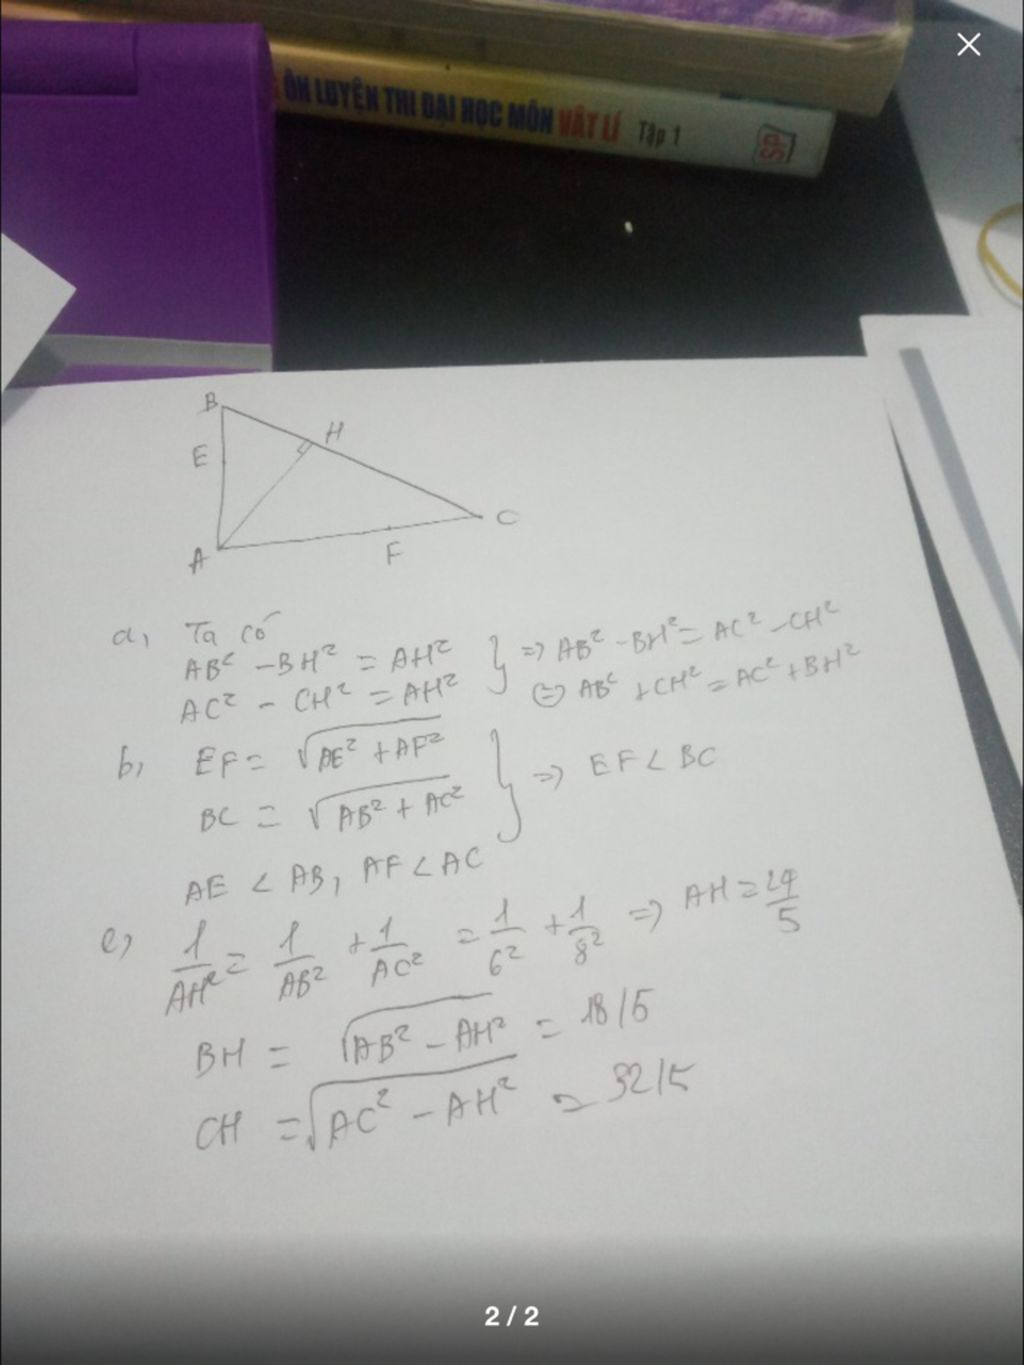 ÔN LUYỆN THI ĐẠI HỌC MÔN VẬT LÍ Tập 1
SP
B
H
E
C
A
F
a, Ta có
AB² - BH² = AH² } => AB² - BH² = AC² - CH²
AC² - CH² = AH² <=> AB² + CH² = AC² + BH²
b, EF = √AE² + AF² } => EF < BC
BC = √AB² + AC²
AE < AB, AF < AC
c, 1/AH² = 1/AB² + 1/AC² = 1/6² + 1/8² => AH = 24/5
BH = √AB² - AH² = 18/5
CH = √AC² - AH² = 32/5
2 / 2